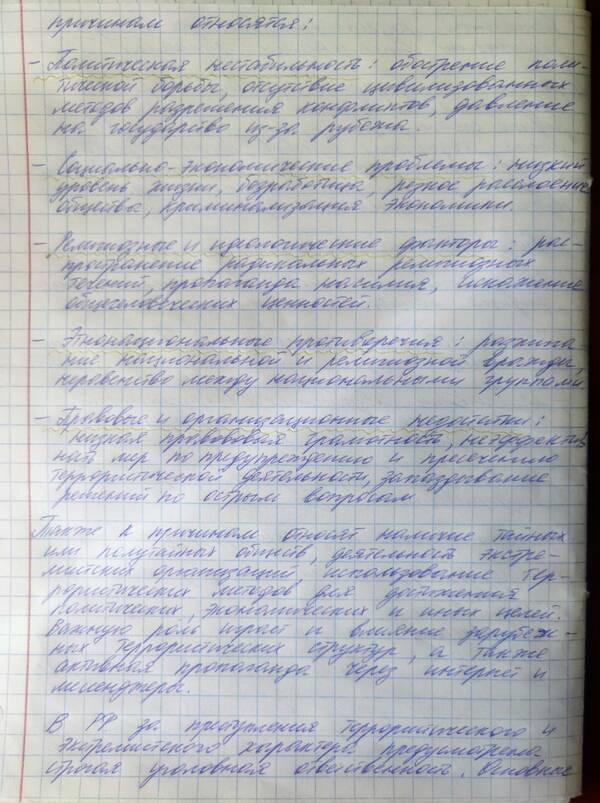 причинам относятся:
- Политическая нестабильность: обострение поли-
тической борьбы, отсутствие цивилизованных
методов разрешения конфликтов, давление
на государство из-за рубежа.
- Социально-экономические проблемы: низкий
уровень жизни, безработица, резкое расслоение
общества, криминализация экономики.
- Религиозные и идеологические факторы: рас-
пространение радикальных религиозных
течений, пропаганда насилия, искажение
общечеловеческих ценностей.
- Этнонациональные противоречия: разжига-
ние национальной и религиозной вражды,
неравенство между национальными группами
- Правовые и организационные недостатки:
низкая правововая грамотность, неэффектив
ность мер по предупреждению и пресечению
террористической деятельности, запаздывание
решений по острым вопросам
Также к причинам относят наличие тайных
или полутайных обществ, деятельность экстре-
мистских организаций использование тер-
рористических методов для достижения
политических, экономических и иных целей.
Важную роль играет и влияние зарубеж-
ных террористических структур, а также
активная пропаганда через интернет и
месенджеры.
В РФ за преступления террористического и
экстремистского характера предусмотрена
строгая уголовная ответственность. Основные